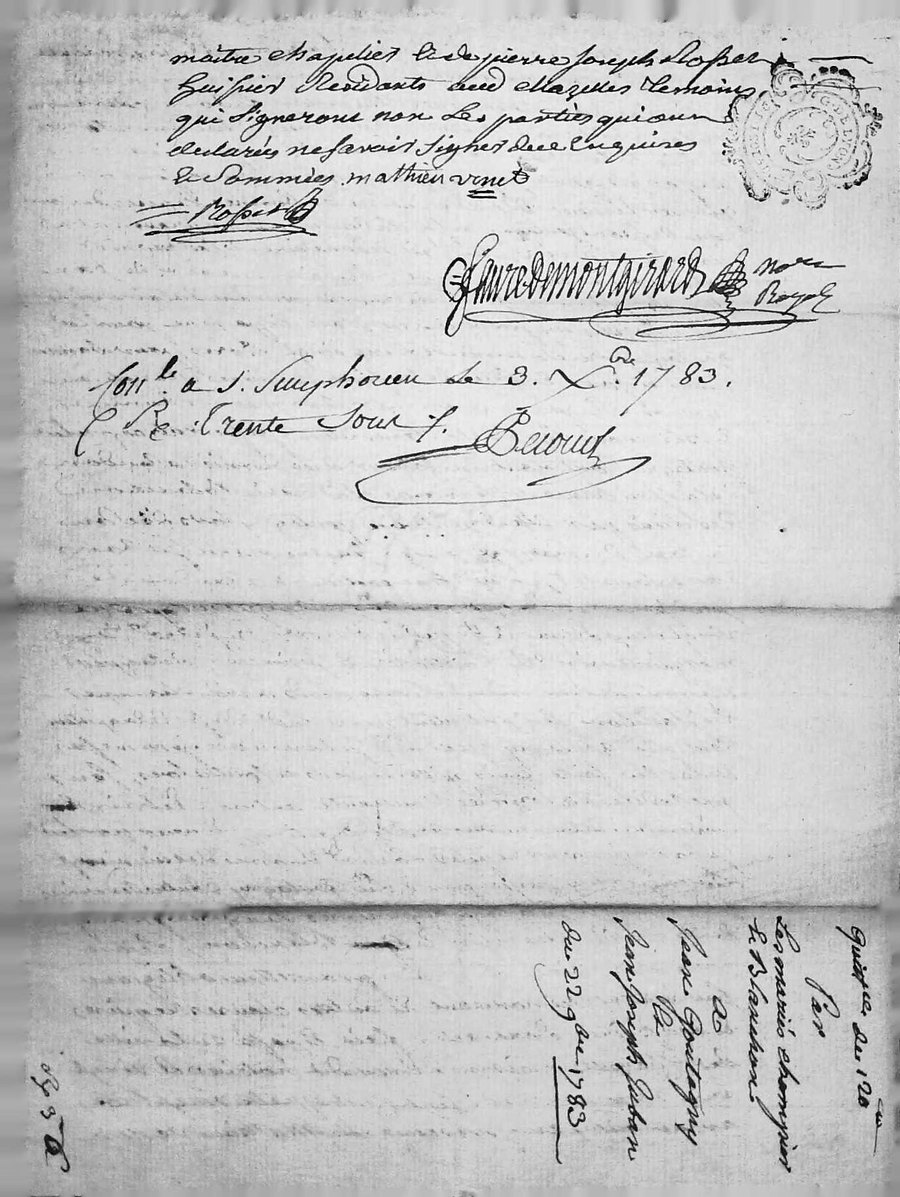 maitre chapelier & de pierre Joseph Rosset
huissier Residants aud Chazelles temoins
qui signeront non les parties qui ont
declarées ne savoir signer de ce Enquises
& sommées mathieu vinet
Rosset
fauredemontgirard nore
Royal
Con.le a s. Simphorien le 3. Xbre. 1783.
R trente sous
Quittce de 120
Par
Les mariés chompier
& Blanchon
a
Jean Poutagny
&
Jean Joseph Juban
du 22 9bre 1783